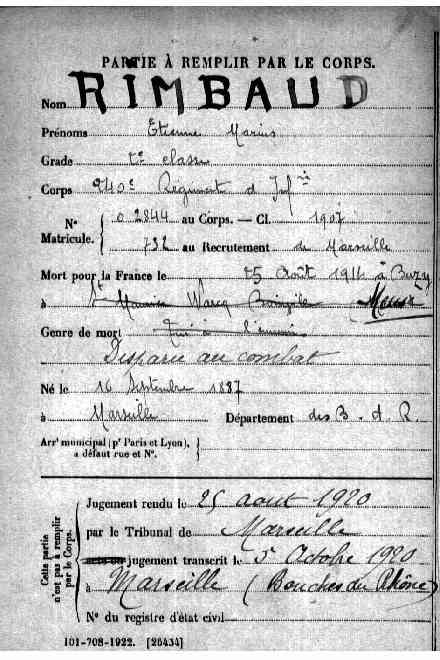 PARTIE À REMPLIR PAR LE CORPS.
Nom RIMBAUD
Prénoms Etienne Marius
Grade 2e classe
Corps 240e Régiment d'Infie
N° Matricule. 02844 au Corps. — Cl. 1907
732 au Recrutement de Marseille
Mort pour la France le 25 Août 1914 à Buzy
à St Maurice Meuse
Genre de mort Tué à l'ennemi
Disparu au combat
Né le 16 Septembre 1887
à Marseille Département des B. d. R.
Arrt municipal (pr Paris et Lyon),
à défaut rue et N°.
Cette partie n'est pas à remplir par le Corps.
Jugement rendu le 25 aout 1920
par le Tribunal de Marseille
jugement transcrit le 5 Octobre 1920
à Marseille (Bouches du Rhône)
N° du registre d'état civil
101-708-1922. [26434]